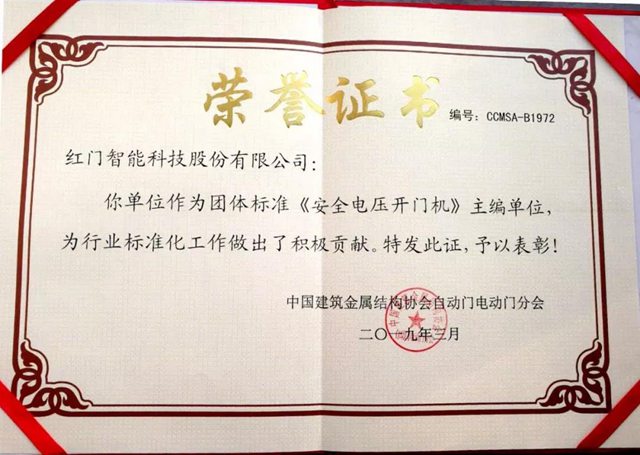 荣誉证书
编号：CCMSA-B1972
红门智能科技股份有限公司：
你单位作为团体标准《安全电压开门机》主编单位，
为行业标准化工作做出了积极贡献。特发此证，予以表彰！
中国建筑金属结构协会自动门电动门分会
二〇一九年三月